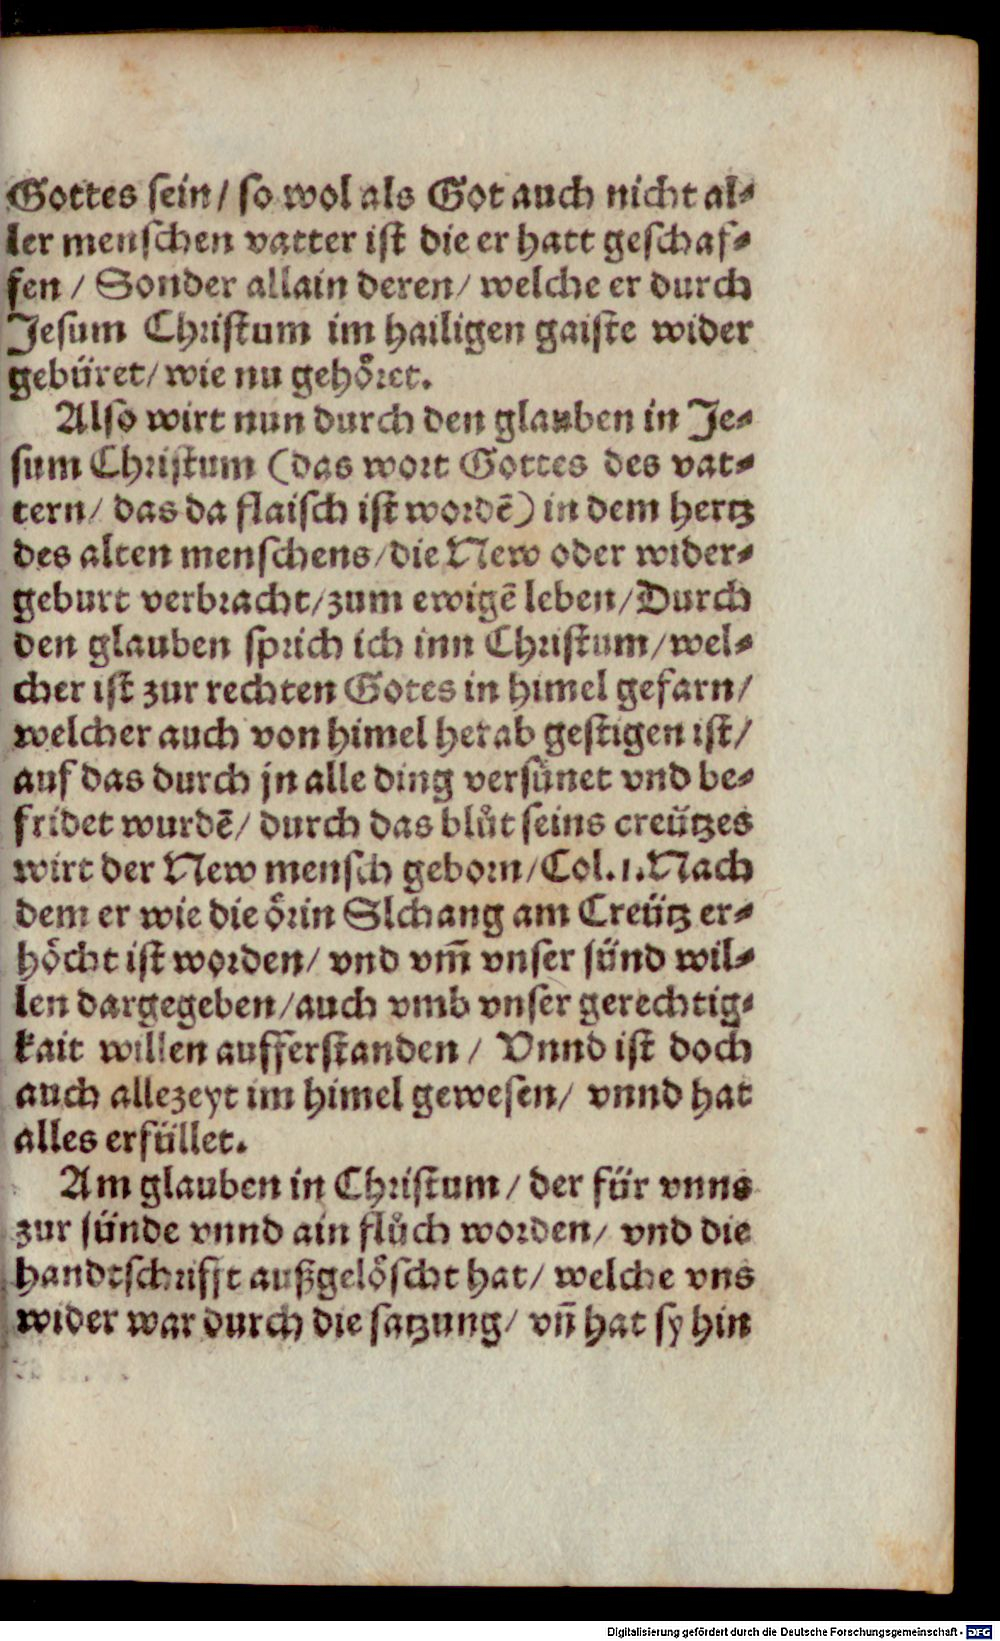 Gottes sein / so wol als Got auch nicht al⸗
ler menschen vatter ist die er hatt geschaf⸗
fen / Sonder allain deren / welche er durch
Jesum Christum im hailigen gaiste wider
gebüret / wie nu gehöret.
Also wirt nun durch den glauben in Je⸗
sum Christum (das wort Gottes des vat⸗
tern / das da flaisch ist wordē) in dem hertz
des alten menschens / die New oder wider⸗
geburt verbracht / zum ewigē leben / Durch
den glauben sprich ich inn Christum / wel⸗
cher ist zur rechten Gotes in himel gefarn /
welcher auch von himel herab gestigen ist /
auf das durch jn alle ding versünet vnd be⸗
fridet wurdē / durch das blůt seins creützes
wirt der New mensch geborn / Col. 1. Nach
dem er wie die örin Slchang am Creütz er⸗
höcht ist worden / vnd vm̄ vnser sünd wil⸗
len dargegeben / auch vmb vnser gerechtig⸗
kait willen aufferstanden / Vnnd ist doch
auch allezeyt im himel gewesen / vnnd hat
alles erfüllet.
Am glauben in Christum / der für vnns
zur sünde vnnd ain flůch worden / vnd die
handtschrifft außgelöscht hat / welche vns
wider war durch die satzung / vn̄ hat sy hin
Digitalisierung gefördert durch die Deutsche Forschungsgemeinschaft - DFG